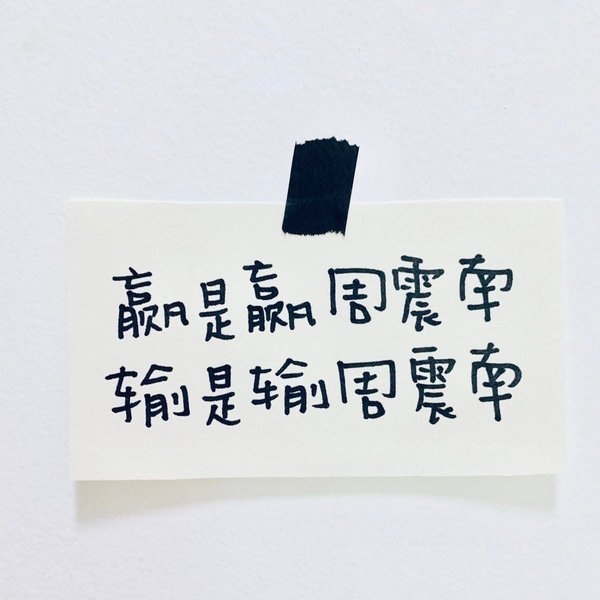 赢是赢周震南
输是输周震南